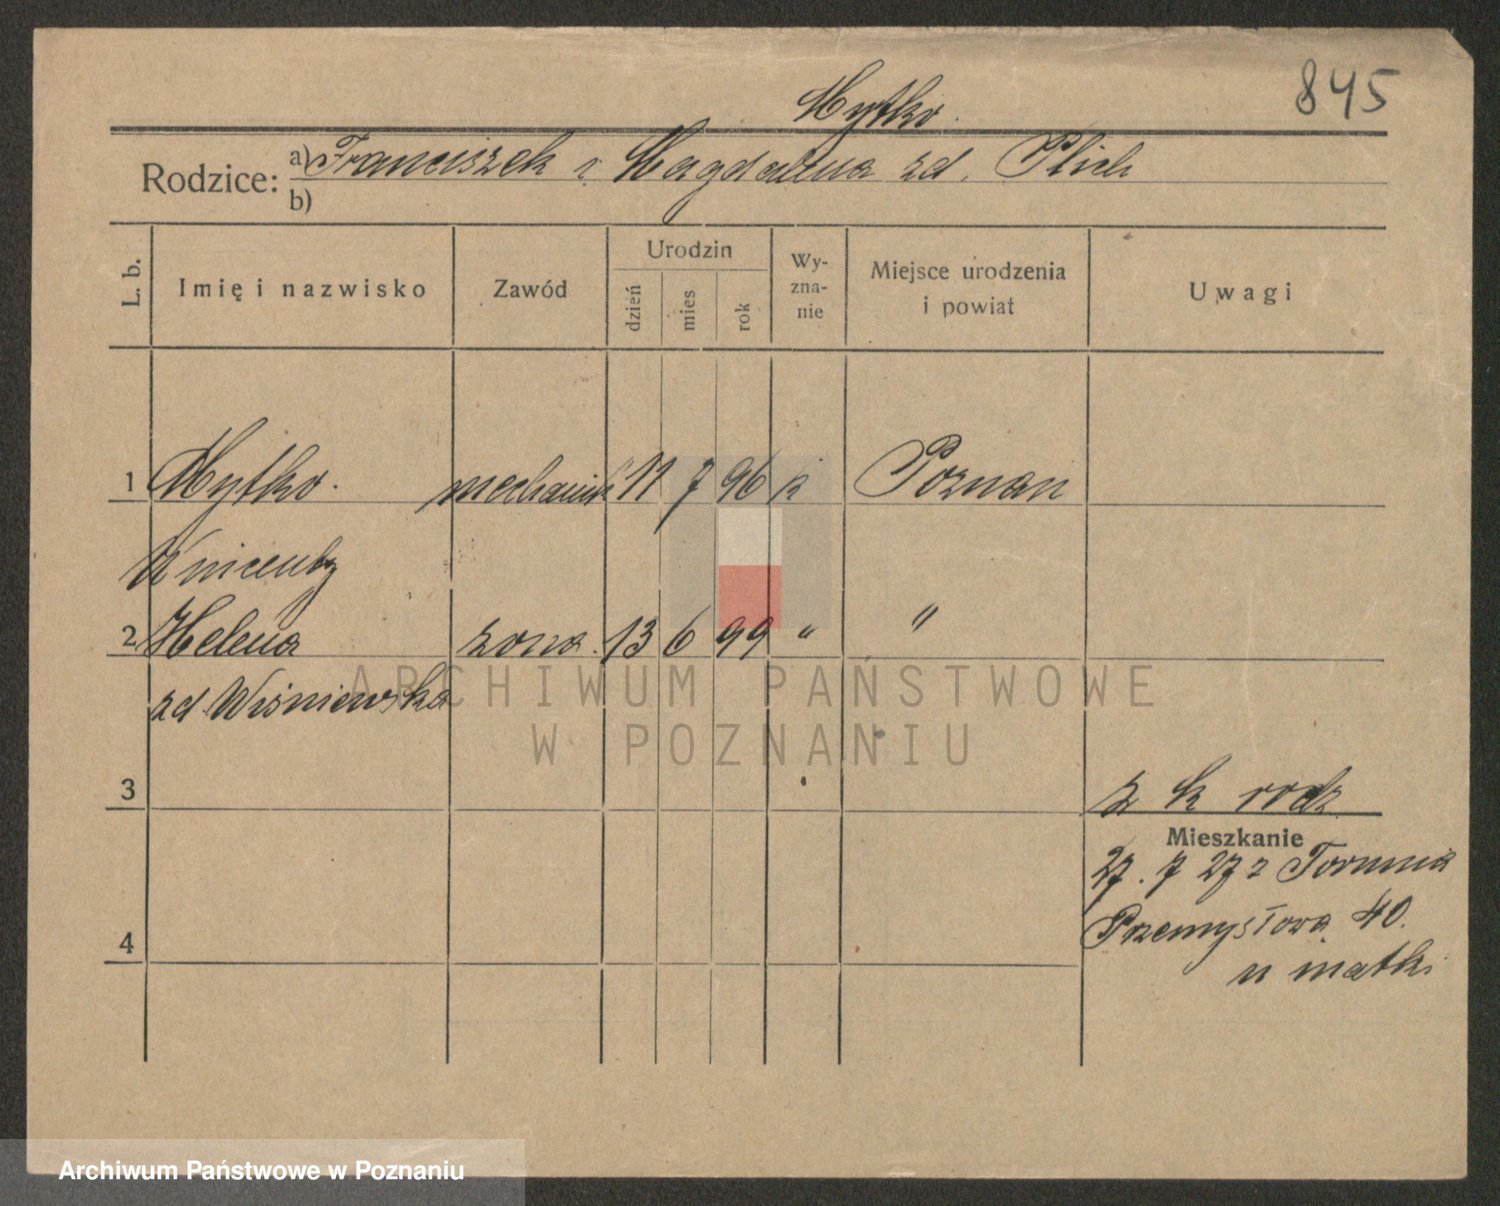 845
Mytko.
Rodzice:
a) Franciszek i Magdalena zd. Plich
b)
L. b.
Imię i nazwisko
Zawód
Urodzin
dzień
mies
rok
Wy-
zna-
nie
Miejsce urodzenia
i powiat
Uwagi
1 Mytko. mechanik 11 7 96 k Poznan
Wincenty
2 Helena zona. 13 6 99 " "
zd Wiśniewska
ARCHIWUM PAŃSTWOWE
W POZNANIU
3
z k rodz
Mieszkanie
27. 7 27 z Torunia
4
Przemysłowa 40.
u matki
Archiwum Państwowe w Poznaniu